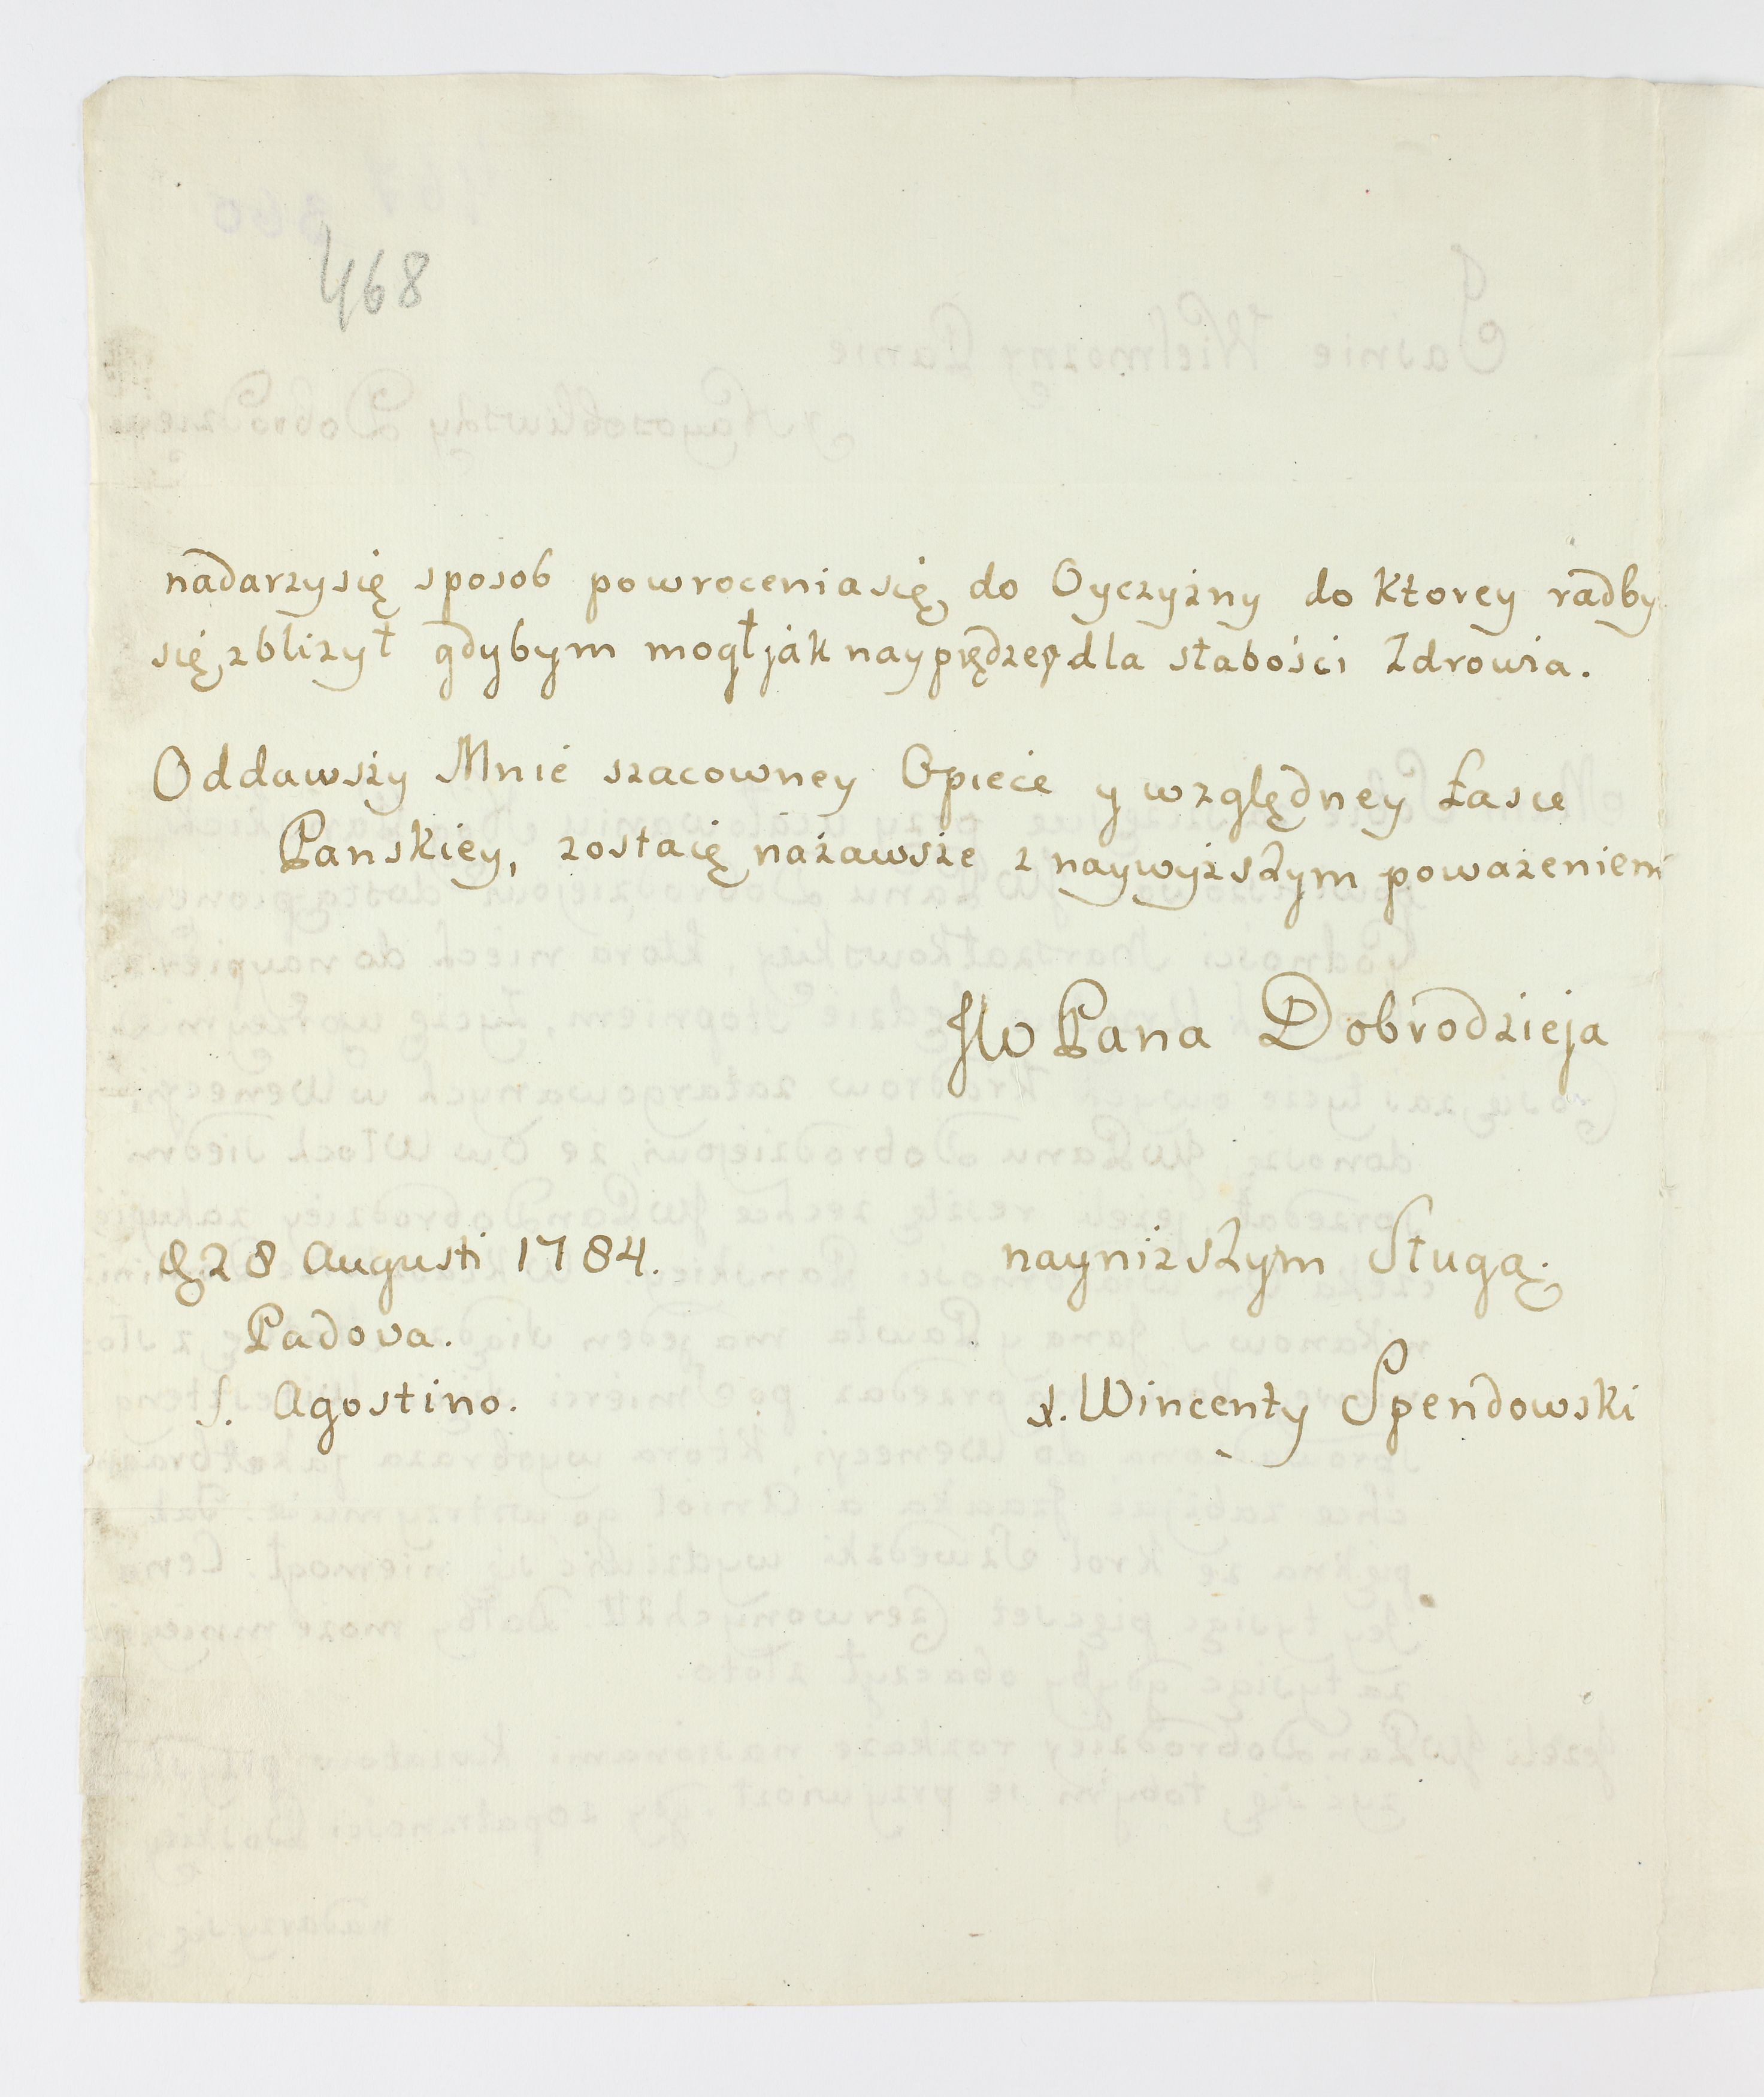 468
nadarzysię sposob powroceniasię do Oyczyzny do Ktorey radby
się zbliżył gdybym mogł jak nayprędzey dla słabości Zdrowia.
Oddawszy Mnie szacowney Opiece y względney Łasce
Panskiey, zostaię nazawsze z naywyższym poważeniem
JW Pana Dobrodzieja
d 28 Augusti 1784.
nayniższym Sługą.
Padova.
S. Agostino.
X. Wincenty Spendowski